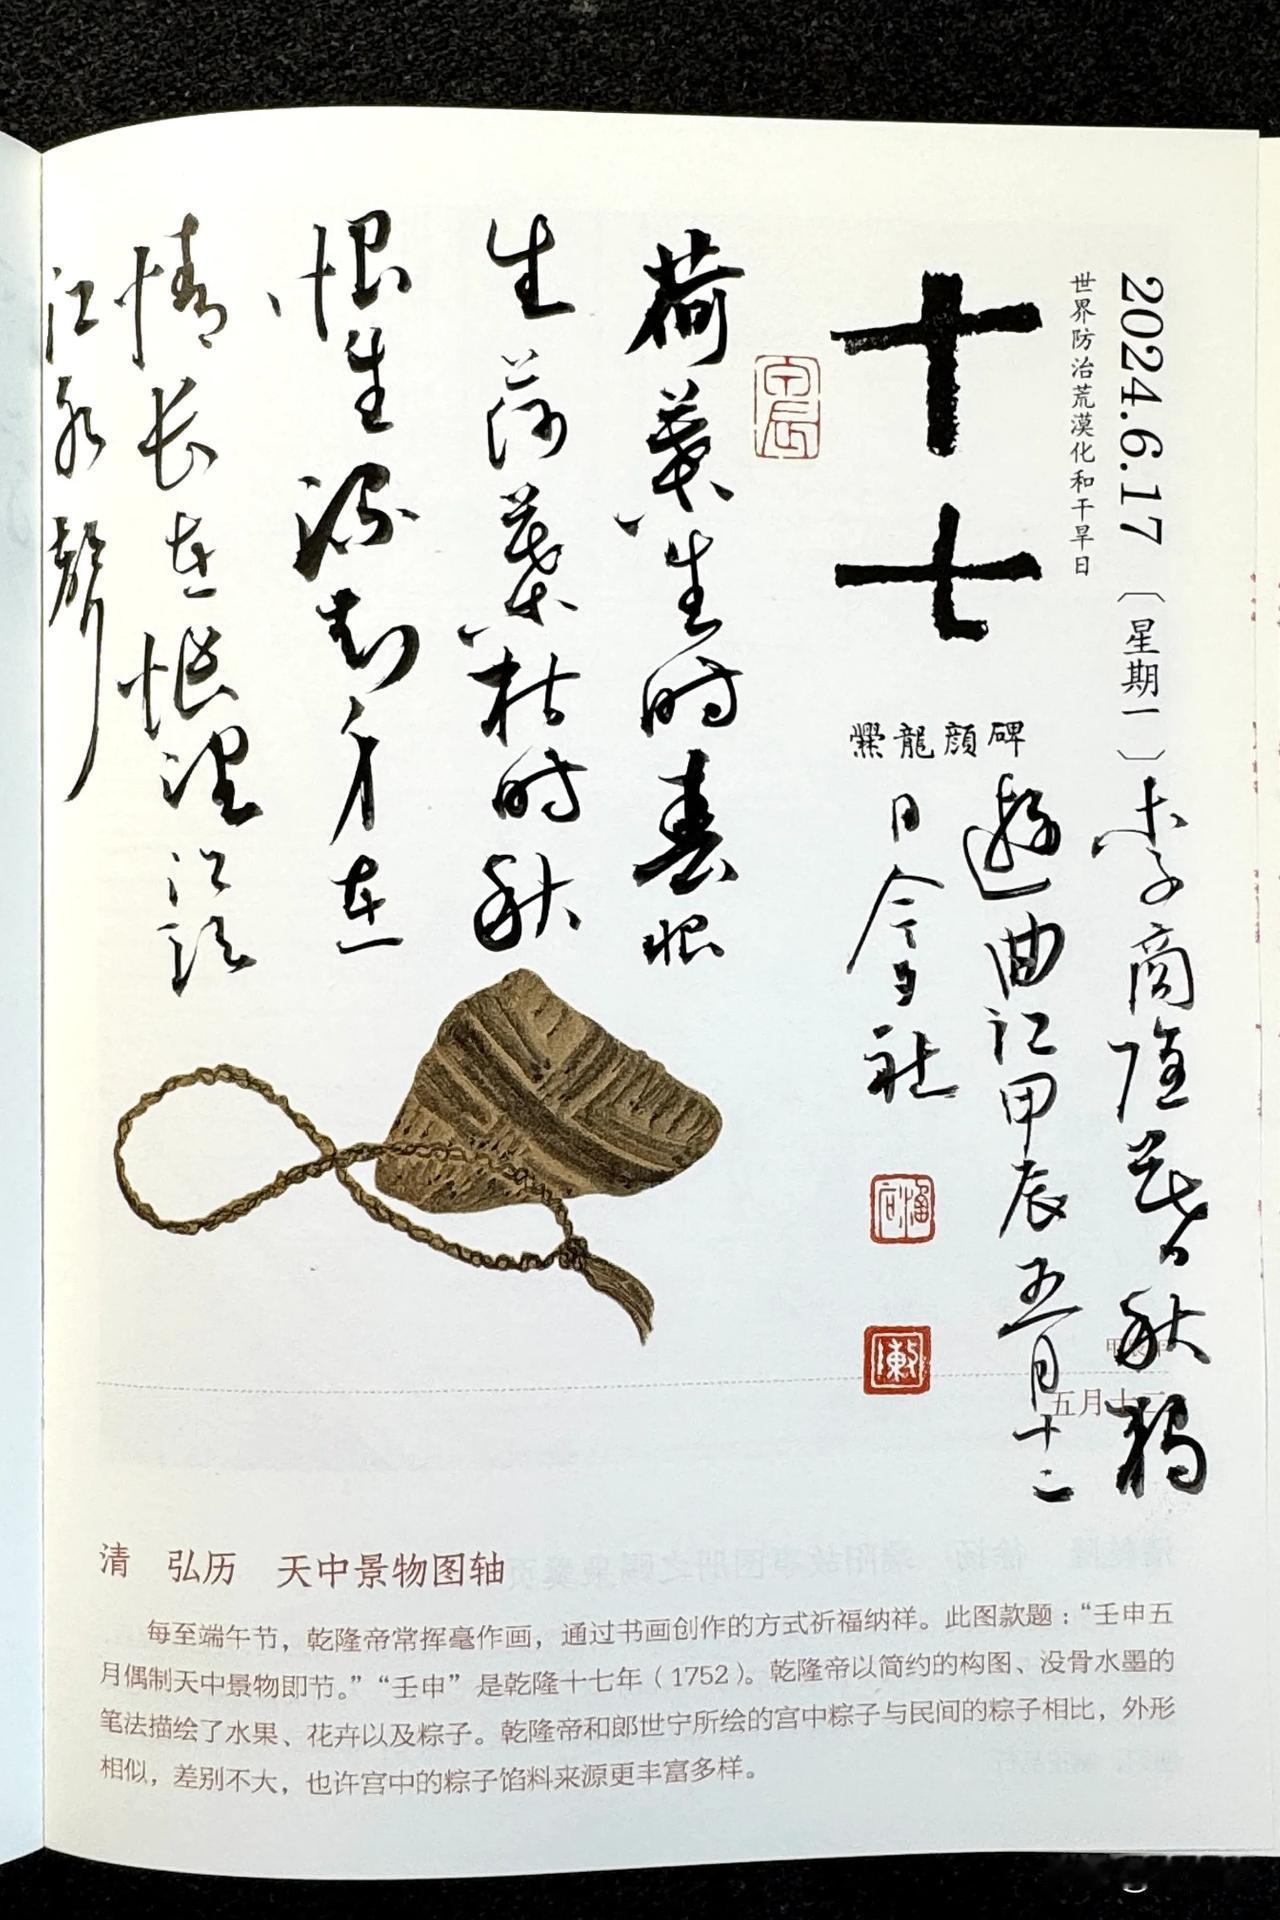 2024.6.17〔星期一〕
世界防治荒漠化和干旱日
十七
爨龍顔碑
甲辰
荷葉生時春恨
生荷葉枯時秋
恨生深知身在
情長在悵望江頭
江水聲
李商隐暮秋獨
遊曲江甲辰五月十二
日
甲辰年
五月十二
清 弘历 天中景物图轴
每至端午节，乾隆帝常挥毫作画，通过书画创作的方式祈福纳祥。此图款题：“壬申五
月偶制天中景物即节。”“壬申”是乾隆十七年（1752）。乾隆帝以简约的构图、没骨水墨的
笔法描绘了水果、花卉以及粽子。乾隆帝和郎世宁所绘的宫中粽子与民间的粽子相比，外形
相似，差别不大，也许宫中的粽子馅料来源更丰富多样。